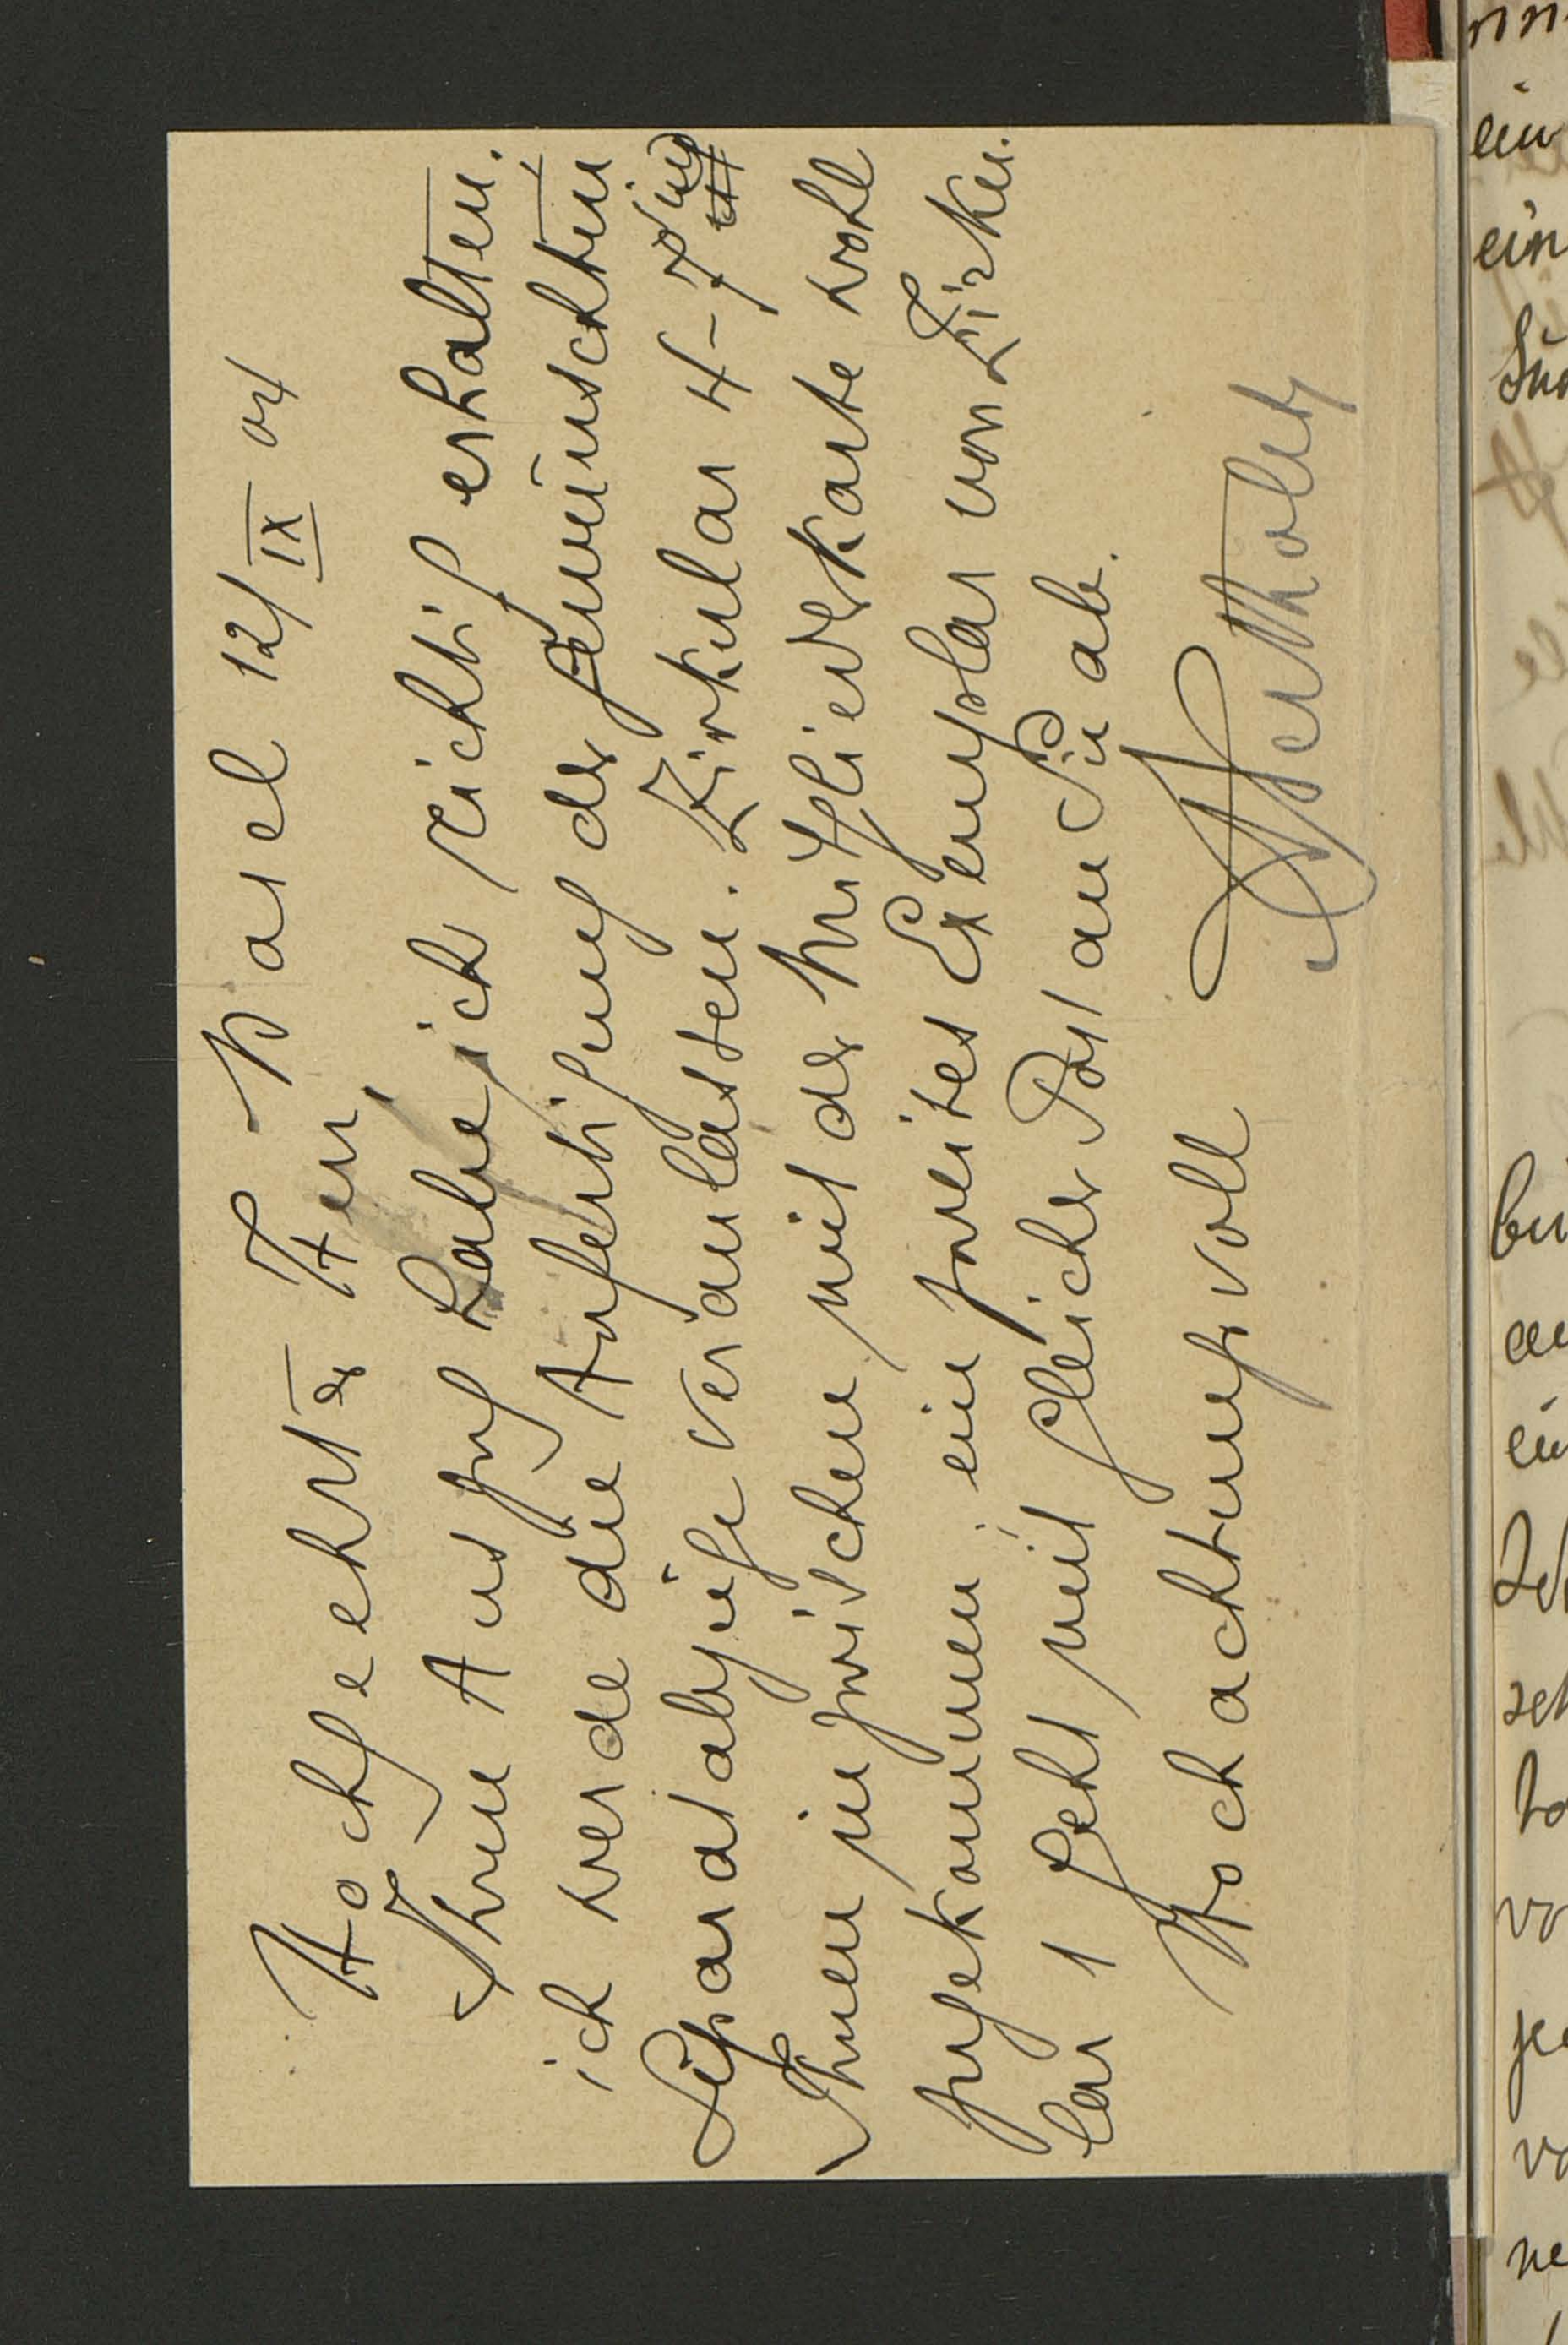 Basel 12/IX 04
Hochgeehrter Herr,
Ihren Auszug habe ich richtig erhalten.
ich werde die Anfertigung der gewünschten
Separatabzüge veranlassen. Zirkular 4-7 sind
Ihnen inzwischen mit der Mitgliedskarte wohl
zugekommen; ein zweites Exemplar von Zirku-
lar 1 geht mit gleicher Post an Sie ab.
Hochachtungsvoll